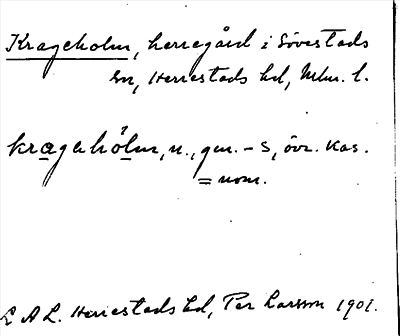 Krageholm, herregård i Sövestads
sn, Herrestads hd, Mlm. l.
krageholm, n., gen. -s, övr. kas.
= nom.
L A L. Herrestads hd, Per Larsson 1901.